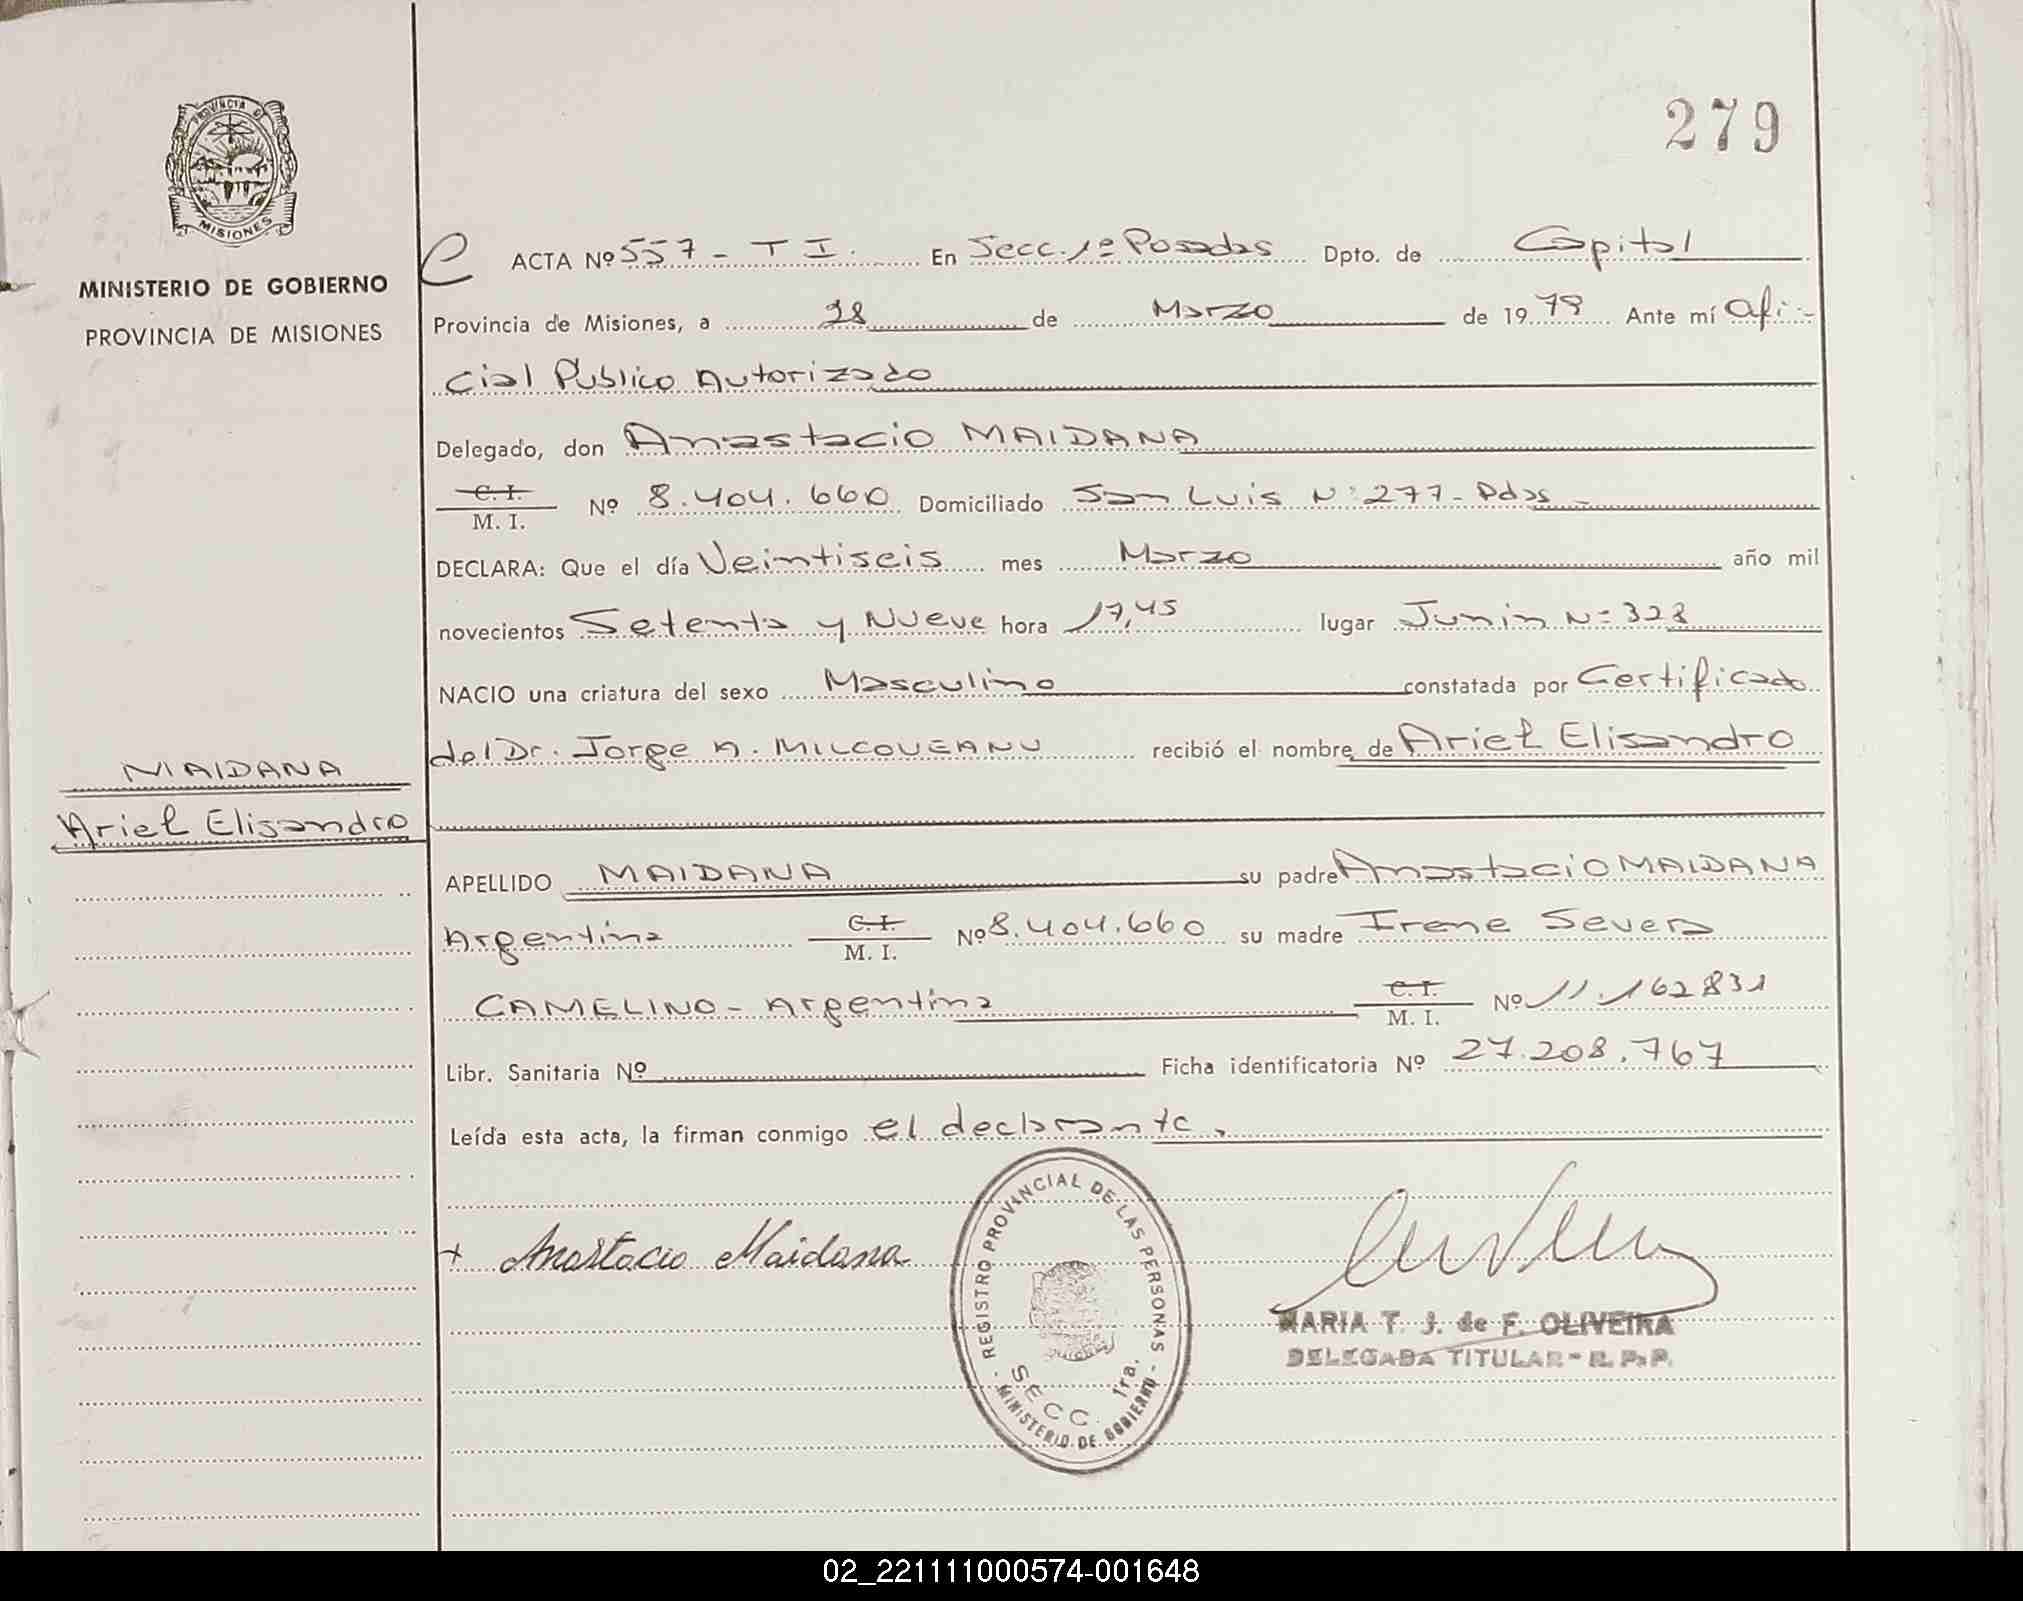 279
PROVINCIA DE
MISIONES
MINISTERIO DE GOBIERNO
PROVINCIA DE MISIONES
ACTA Nº 557 - T I. En Secc. 1º Posadas Dpto. de Capital
Provincia de Misiones, a 28 de Marzo de 1979 Ante mí Ofi-
cial Publico Autorizado
Delegado, don Anastacio MAIDANA
C. I.
M. I. Nº 8.404.660 Domiciliado San Luis Nº 277 - Pdas -
DECLARA: Que el día Veintiseis mes Marzo año mil
novecientos Setenta y Nueve hora 17,45 lugar Junin Nº 323
NACIO una criatura del sexo Masculino constatada por Certificado
del Dr. Jorge A. MILCOVEANU recibió el nombre de Ariel Elisandro
MAIDANA
Ariel Elisandro
APELLIDO MAIDANA su padre Anastacio MAIDANA
Argentina C. I. M. I. Nº 8.404.660 su madre Irene Severa
CAMELINO - Argentina C. I. M. I. Nº 11.162831
Libr. Sanitaria Nº Ficha identificatoria Nº 27.208.767
Leída esta acta, la firman conmigo el declarante.
+ Anastacio Maidana
- REGISTRO PROVINCIAL DE LAS PERSONAS -
SECC. 1ra.
MINISTERIO DE GOBIERNO
MARIA T. J. de F. OLIVEIRA
DELEGADA TITULAR - R. P. P.
02_221111000574-001648